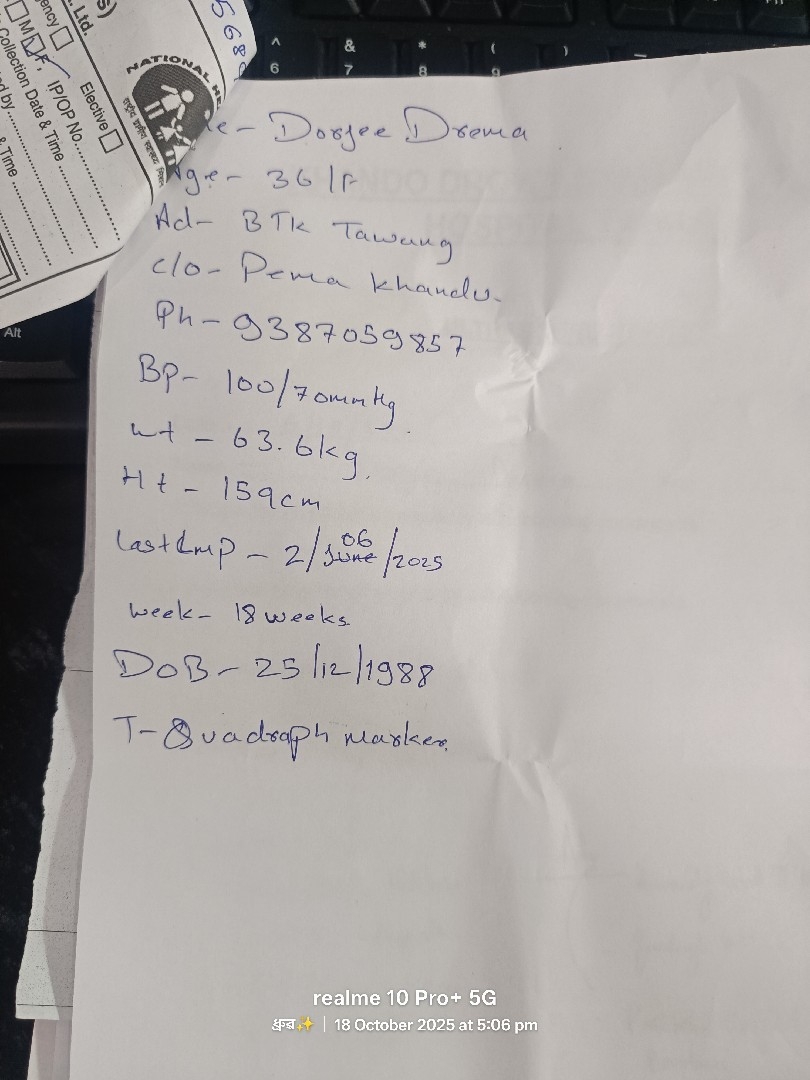 S)
. Ltd.
gency
Elective
M F,
IP/OP No.
Collection Date & Time
ed by
& Time
NATIONAL HE
568
^ & * ( )
6 7 8 9
Alt
e - Dorjee Drema
Age - 36/F
Ad - BTK Tawang
c/o - Pema Khandu.
Ph - 9387059857
Bp - 100/70mmHg
wt - 63.6kg.
Ht - 159cm
last Lmp - 2/06/2025
week - 18 weeks
DOB - 25/12/1988
T - Quadraph marker.
realme 10 Pro+ 5G
ধ্রুব✨ | 18 October 2025 at 5:06 pm